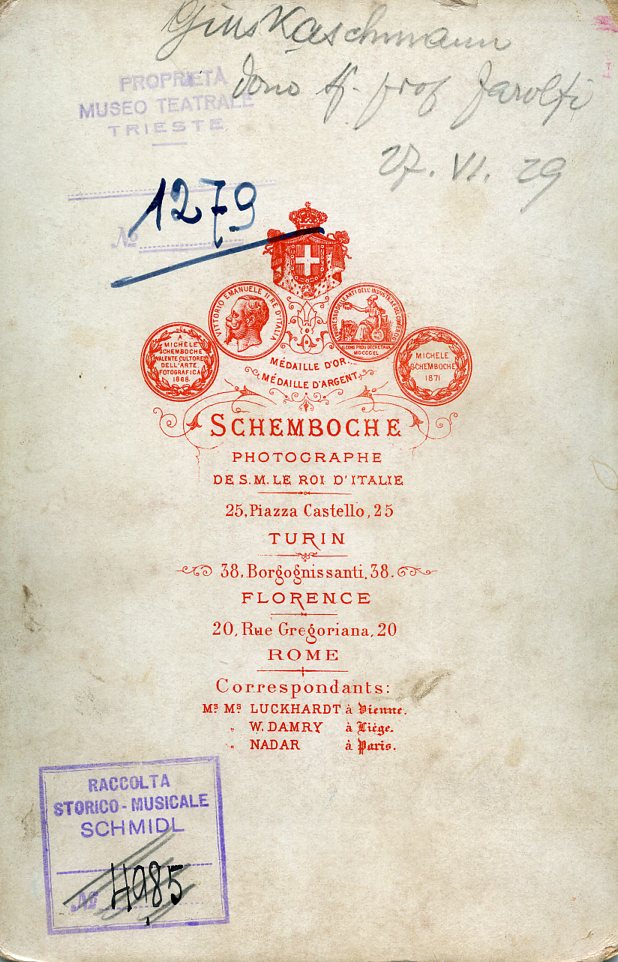 Gius Kaschmann
dono sf. prof Jarolfi
27. VI. 29
PROPRIETÀ
MUSEO TEATRALE
TRIESTE
1279
No
VITTORIO EMANUELE II RE D'ITALIA
A
MICHELE
SCHEMBOCHE
VALENTE CULTORE
DELL'ARTE
FOTOGRAFICA
1868
MICHELE
SCHEMBOCHE
1871
MÉDAILLE D'OR.
MÉDAILLE D'ARGENT.
SCHEMBOCHE
PHOTOGRAPHE
DE S.M. LE ROI D'ITALIE
25, Piazza Castello, 25
TURIN
38, Borgognissanti, 38.
FLORENCE
20, Rue Gregoriana, 20
ROME
Correspondants:
Mrs Mrs LUCKHARDT à Vienne.
" W. DAMRY à Liége.
" NADAR à Paris.
RACCOLTA
STORICO-MUSICALE
SCHMIDL
No 4985